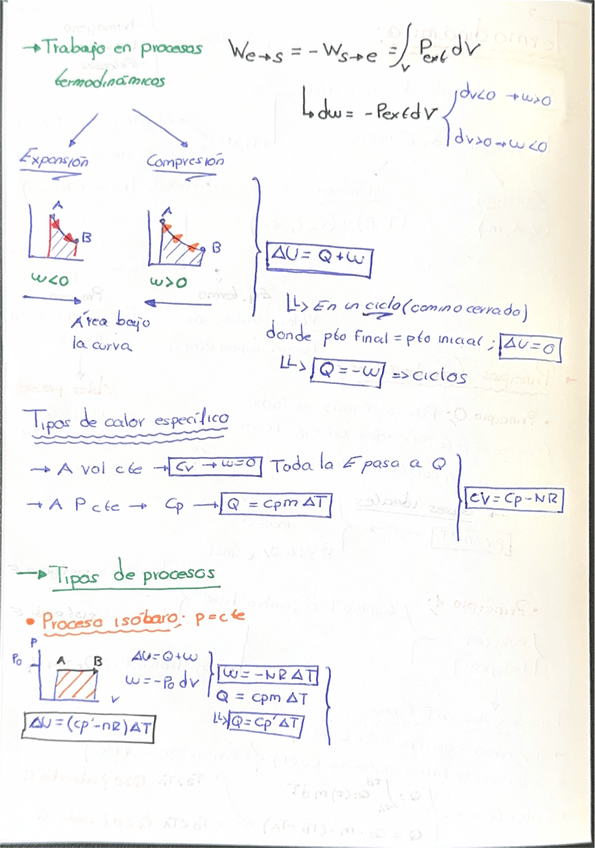 → Trabajo en procesos termodinámicos
We→s = -Ws→e = ∫v Pext dV
↳ dw = -Pext dV { dv<0 → w>0
dv>0 → w<0
Expansión
Compresión
A
B
A
B
w<0
w>0
Área bajo
la curva
ΔU = Q + W
↳> En un ciclo (camino cerrado)
donde pto final = pto inicial ; ΔU = 0
↳> Q = -W => ciclos
Tipos de calor específico
→ A vol cte → Cv → w=0 Toda la E pasa a Q
→ A P cte → Cp → Q = cpm ΔT
CV = Cp - NR
→ Tipos de procesos
• Proceso isóbaro: p=cte
P
Po
A
B
V
ΔU = Q+W
W = -Po dv
W = -NR ΔT
Q = cpm ΔT
↳> Q = Cp' ΔT
ΔU = (Cp' - nR) ΔT